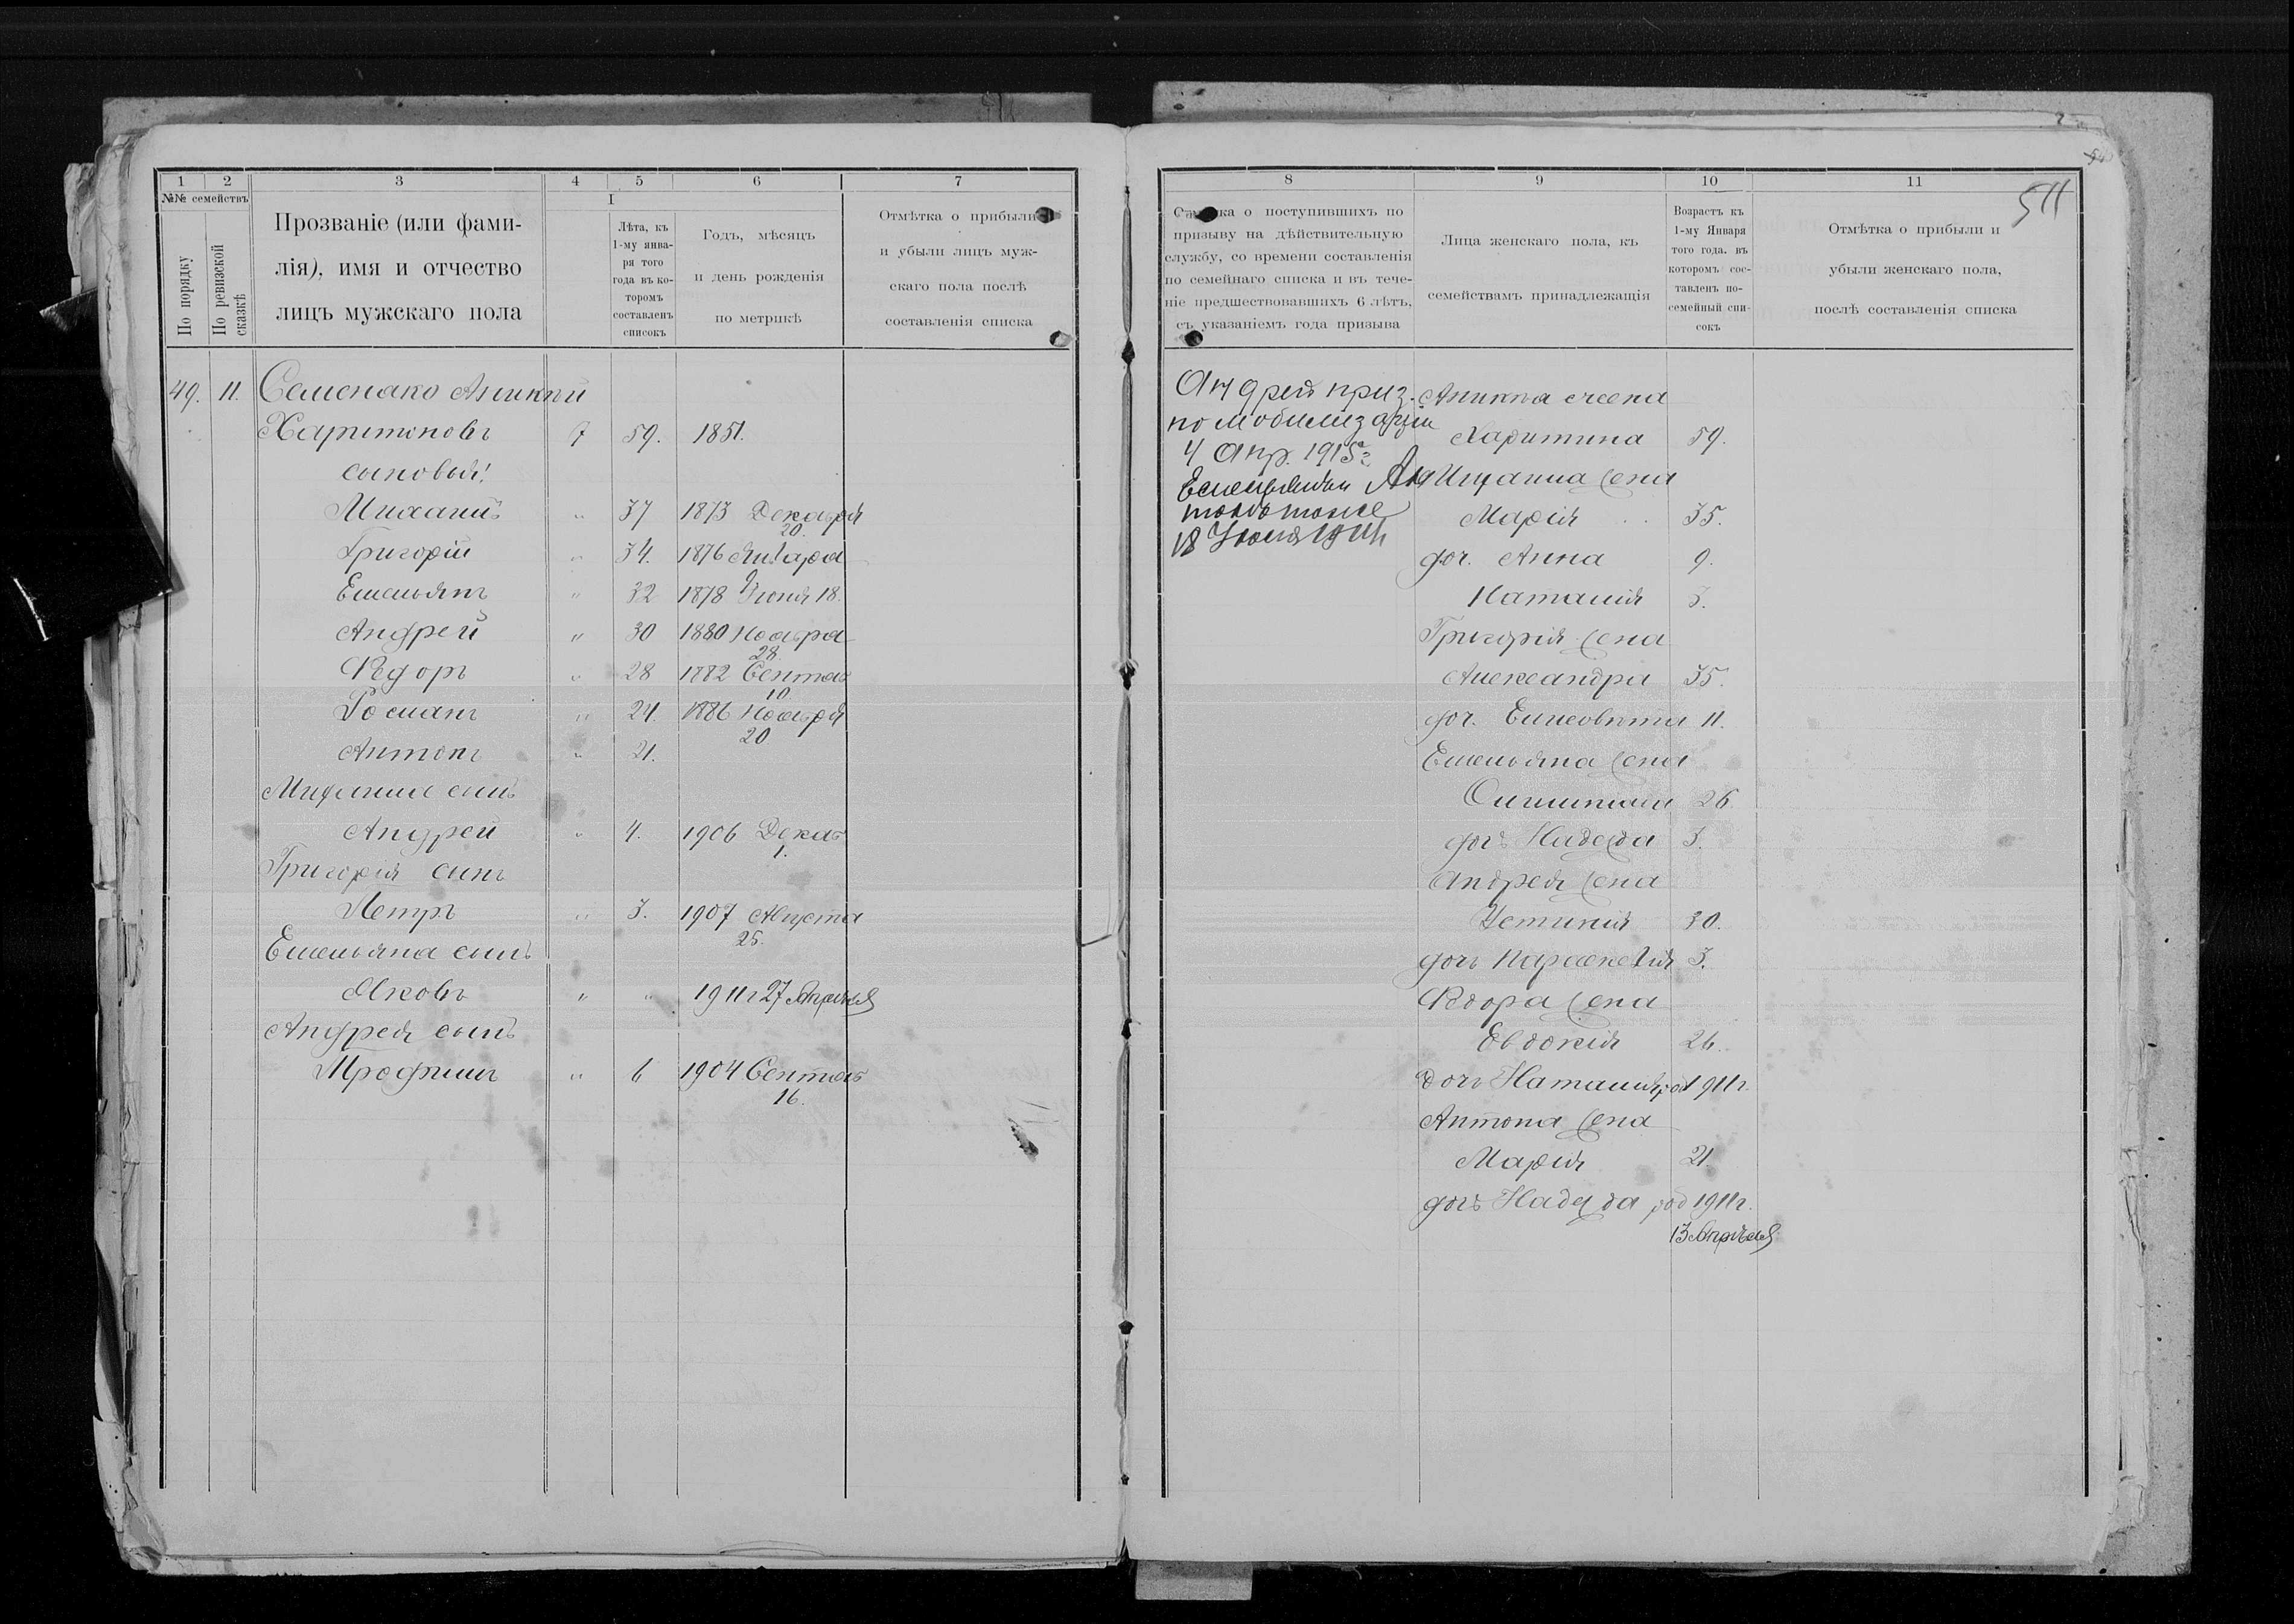 511
1 2 3 4 5 6 7
№№ семействъ
По порядку
По ревизской сказкѣ
Прозваніе (или фами-
лія), имя и отчество
лицъ мужскаго пола
I
Лѣта, къ
1-му янва-
ря того
года въ ко-
торомъ
составленъ
списокъ
Годъ, мѣсяцъ
и день рожденія
по метрикѣ
Отмѣтка о прибыли
и убыли лицъ муж-
скаго пола послѣ
составленія списка
49. 11. Семенако Аникій
Харитоновъ 7 59. 1851.
сыновья:
Михаилъ " 37 1873 Декабря
20.
Григорій " 34. 1876 Января
Емельянъ " 32 1878 Іюня 18.
Андрей " 30 1880 Ноября
28
Ѳедоръ " 28 1882 Сентяб
10
Романъ " 24. 1886 Ноября
20
Антонъ " 21.
Михаила сынъ
Андрей " 4. 1906 Декаб
1.
Григорія сынъ
Петръ " 3. 1907 Августа
25.
Емельяна сынъ
Яковъ " " 1911 г 27 Апрѣля
Андрея сынъ
Трофимъ " 6 1904 Сентяб
16.
8 9 10 11
Отмѣтка о поступившихъ по
призыву на дѣйствительную
службу, со времени составленія
по семейнаго списка и въ тече-
ніе предшествовавшихъ 6 лѣтъ,
съ указаніемъ года призыва
Лица женскаго пола, къ
семействамъ принадлежащія
Возрастъ къ
1-му Января
того года. въ
которомъ сос-
тавленъ по-
семейный спи-
сокъ
Отмѣтка о прибыли и
убыли женскаго пола,
послѣ составленія списка
Андрей приз.
по мобилизаціи
4 Апр. 1915 г
Емельянъ Ан
тонъ тоже
18 Іюля 1914
Аникія жена
Харитина 59.
Михаила жена
Марія 35.
доч. Анна 9.
Наталія 3.
Григорія жена
Александра 35.
доч. Елисовета 11.
Емельяна жена
26
дочь Надежда 3.
Андрея жена
Устинія 30.
дочь Параскевія 3.
Ѳедора жена
Евдокія 26.
дочь Наталія род 1911 г.
Антона жена
Марія 21.
дочь Надежда род 1911 г.
13 Апрѣля